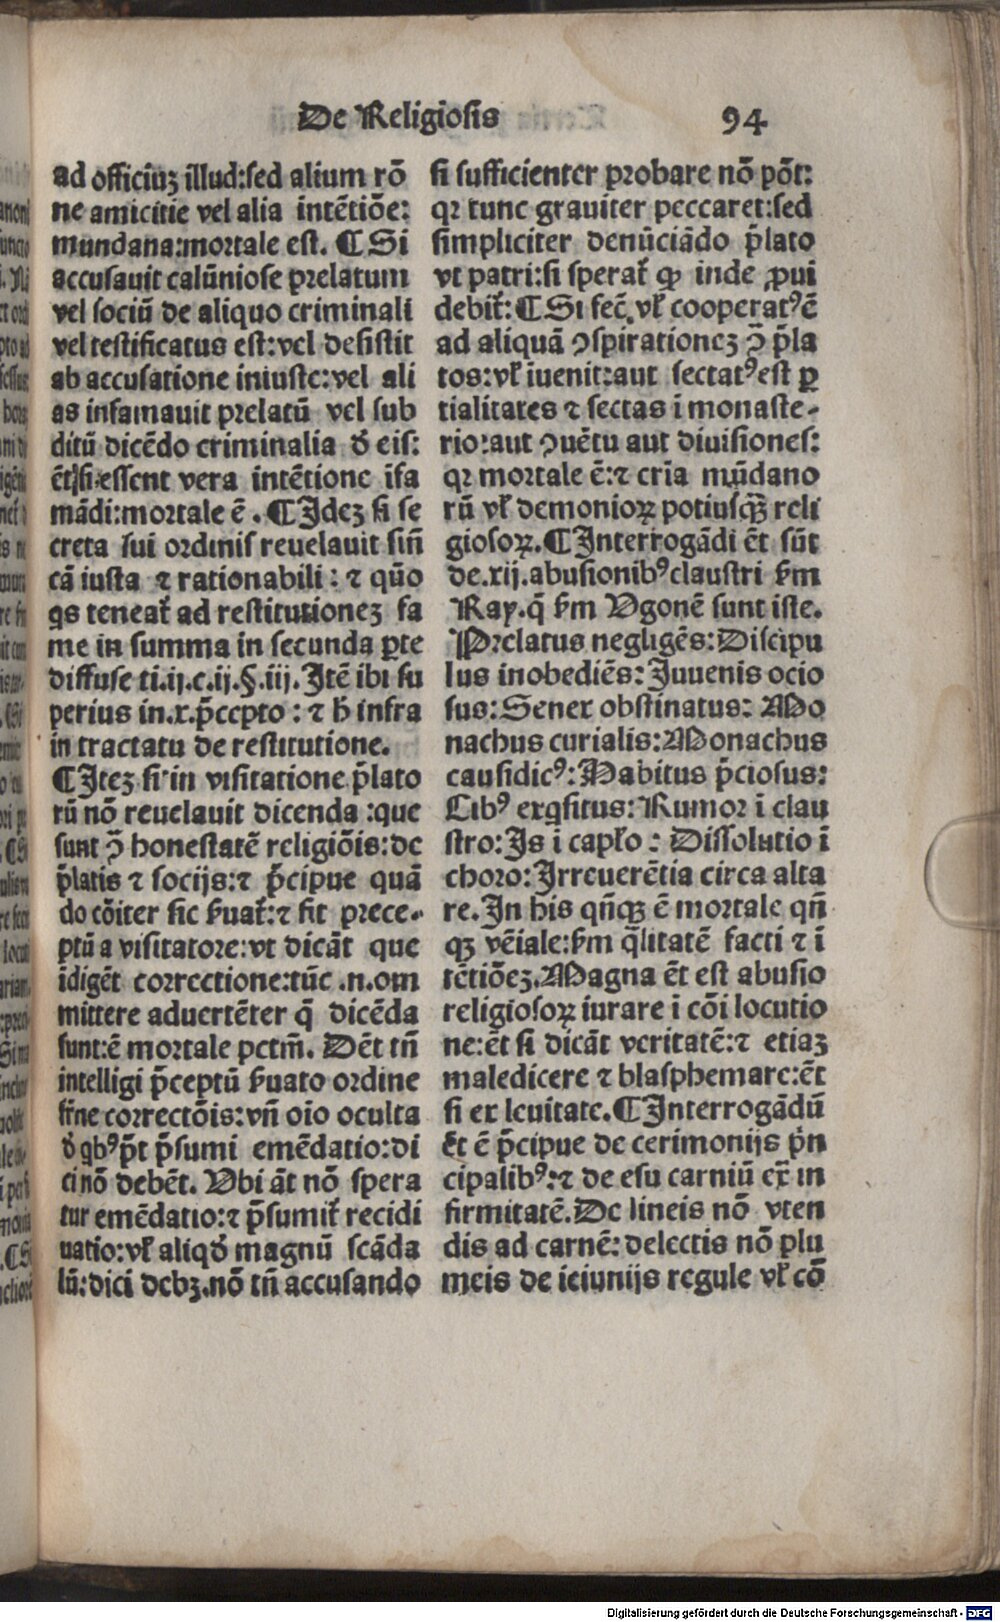 De Religiosis
94
ad officiuʒ illud:sed alium rõ
ne amicitie vel alia intẽtiõe:
mundana:mortale est. ¶ Si
accusauit calũniose prelatum
vel sociũ de aliquo criminali
vel testificatus est:vel desistit
ab accusatione iniuste:vel ali
as infamauit prelatũ vel sub
ditũ dicẽdo criminalia ꝺ̃ eis:
ẽt si essent vera intẽtione ĩfa
mãdi:mortale ẽ. ¶ Jdeʒ si se
creta sui ordinis reuelauit siñ
cã iusta ⁊ rationabili: ⁊ qũo
qs teneat̃ ad restitutioneʒ fa
me in summa in secunda ꝑte
diffuse ti.ij.c.ij.§.iij. Jtẽ ibi su
perius in.x.p̃cepto: ⁊ h̃ infra
in tractatu de restitutione.
¶ Jteʒ si in visitatione p̃lato
rũ nõ reuelauit dicenda :que
sunt ꝯ̃ honestatẽ religiõis:de
p̃latis ⁊ socijs:⁊ p̃cipue quã
do cõiter sic ẜuat̃:⁊ fit prece⸗
ptũ a visitatore:vt dicãt que
ĩdigẽt correctione:tũc .n.om
mittere aduertẽter q̃ dicẽda
sunt:ẽ mortale pctm̃. Dẽt tñ
intelligi p̃ceptũ ẜuato ordine
frne correctõis:vñ oio oculta
ꝺ̃ qbꝰ p̃t p̃sumi emẽdatio:di
ci nõ debẽt. Vbi ãt nõ spera
tur emẽdatio:⁊ p̃sumit̃ recidi
uatio:vł aliqꝺ̃ magnũ scãda
lũ:dici debʒ.nõ tñ accusando
si sufficienter probare nõ põt:
qꝛ tunc grauiter peccaret:sed
simpliciter denũciãdo p̃lato
vt patri:si sperat̃ ꝙ inde ꝓui
debit̃: ¶ Si fec̃.vł cooperatꝰ ẽ
ad aliquã ꝯspirationeʒ ꝯ̃ p̃la
tos:vł iuenit:aut sectatꝰ est ꝑ
tialitates ⁊ sectas ĩ monaste⸗
rio:aut ꝯuẽtu aut diuisiones:
qꝛ mortale ẽ:⁊ cria mũdano
rũ vł demonioꝝ potiusqʒ̃ reli
giosoꝝ. ¶ Jnterrogãdi ẽt sũt
de.xij.abusionibꝰ claustri ẜm
Ray.q̃ ẜm Vgonẽ sunt iste.
Prelatus negligẽs: Discipu
lus inobediẽs: Juuenis ocio
sus: Senex obstinatus: Mo
nachus curialis: Monachus
causidicꝰ: Habitus p̃ciosus:
Cibꝰ exqsitus: Rumor ĩ clau
stro: Js ĩ capło: Dissolutio ĩ
choro: Jrreuerẽtia circa alta
re. Jn his qñqʒ ẽ mortale qñ
qʒ vẽiale:ẜm q̃litatẽ facti ⁊ ĩ
tẽtiõeʒ. Magna ẽt est abusio
religiosoꝝ iurare ĩ cõi locutio
ne:ẽt si dicãt veritatẽ:⁊ etiaʒ
maledicere ⁊ blasphemare:ẽt
si ex leuitate. ¶ Jnterrogãdũ
ẽt ẽ p̃cipue de cerimonijs p̃n
cipalibꝰ:⁊ de esu carniũ ex̃ in
firmitatẽ. De lineis nõ vten
dis ad carnẽ: delectis nõ plu
meis de ieiunijs regule vł cõ
Digitalisierung gefördert durch die Deutsche Forschungsgemeinschaft - DFG